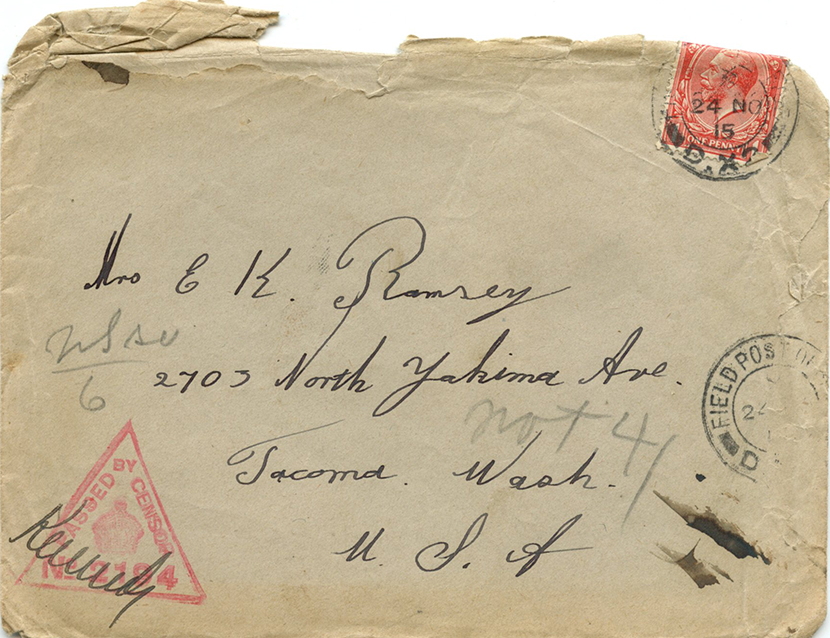 24 NO
15
ONE PENNY
D.X
Mrs E K. Ramsey
2703 North Yakima Ave.
Tacoma. Wash.
U. S. A
6
not 41
FIELD POST OF
24
D
PASSED BY CENSOR
No 2184